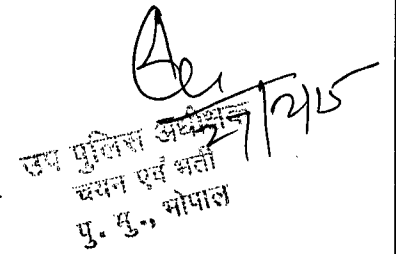 27/2/15
उप पुलिस अधीक्षक
चयन एवं भर्ती
पु. मु., भोपाल